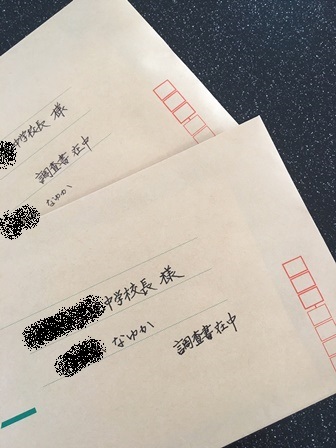 中学校長 様
調査書在中
なゆか
中学校長 様
なゆか
調査書在中